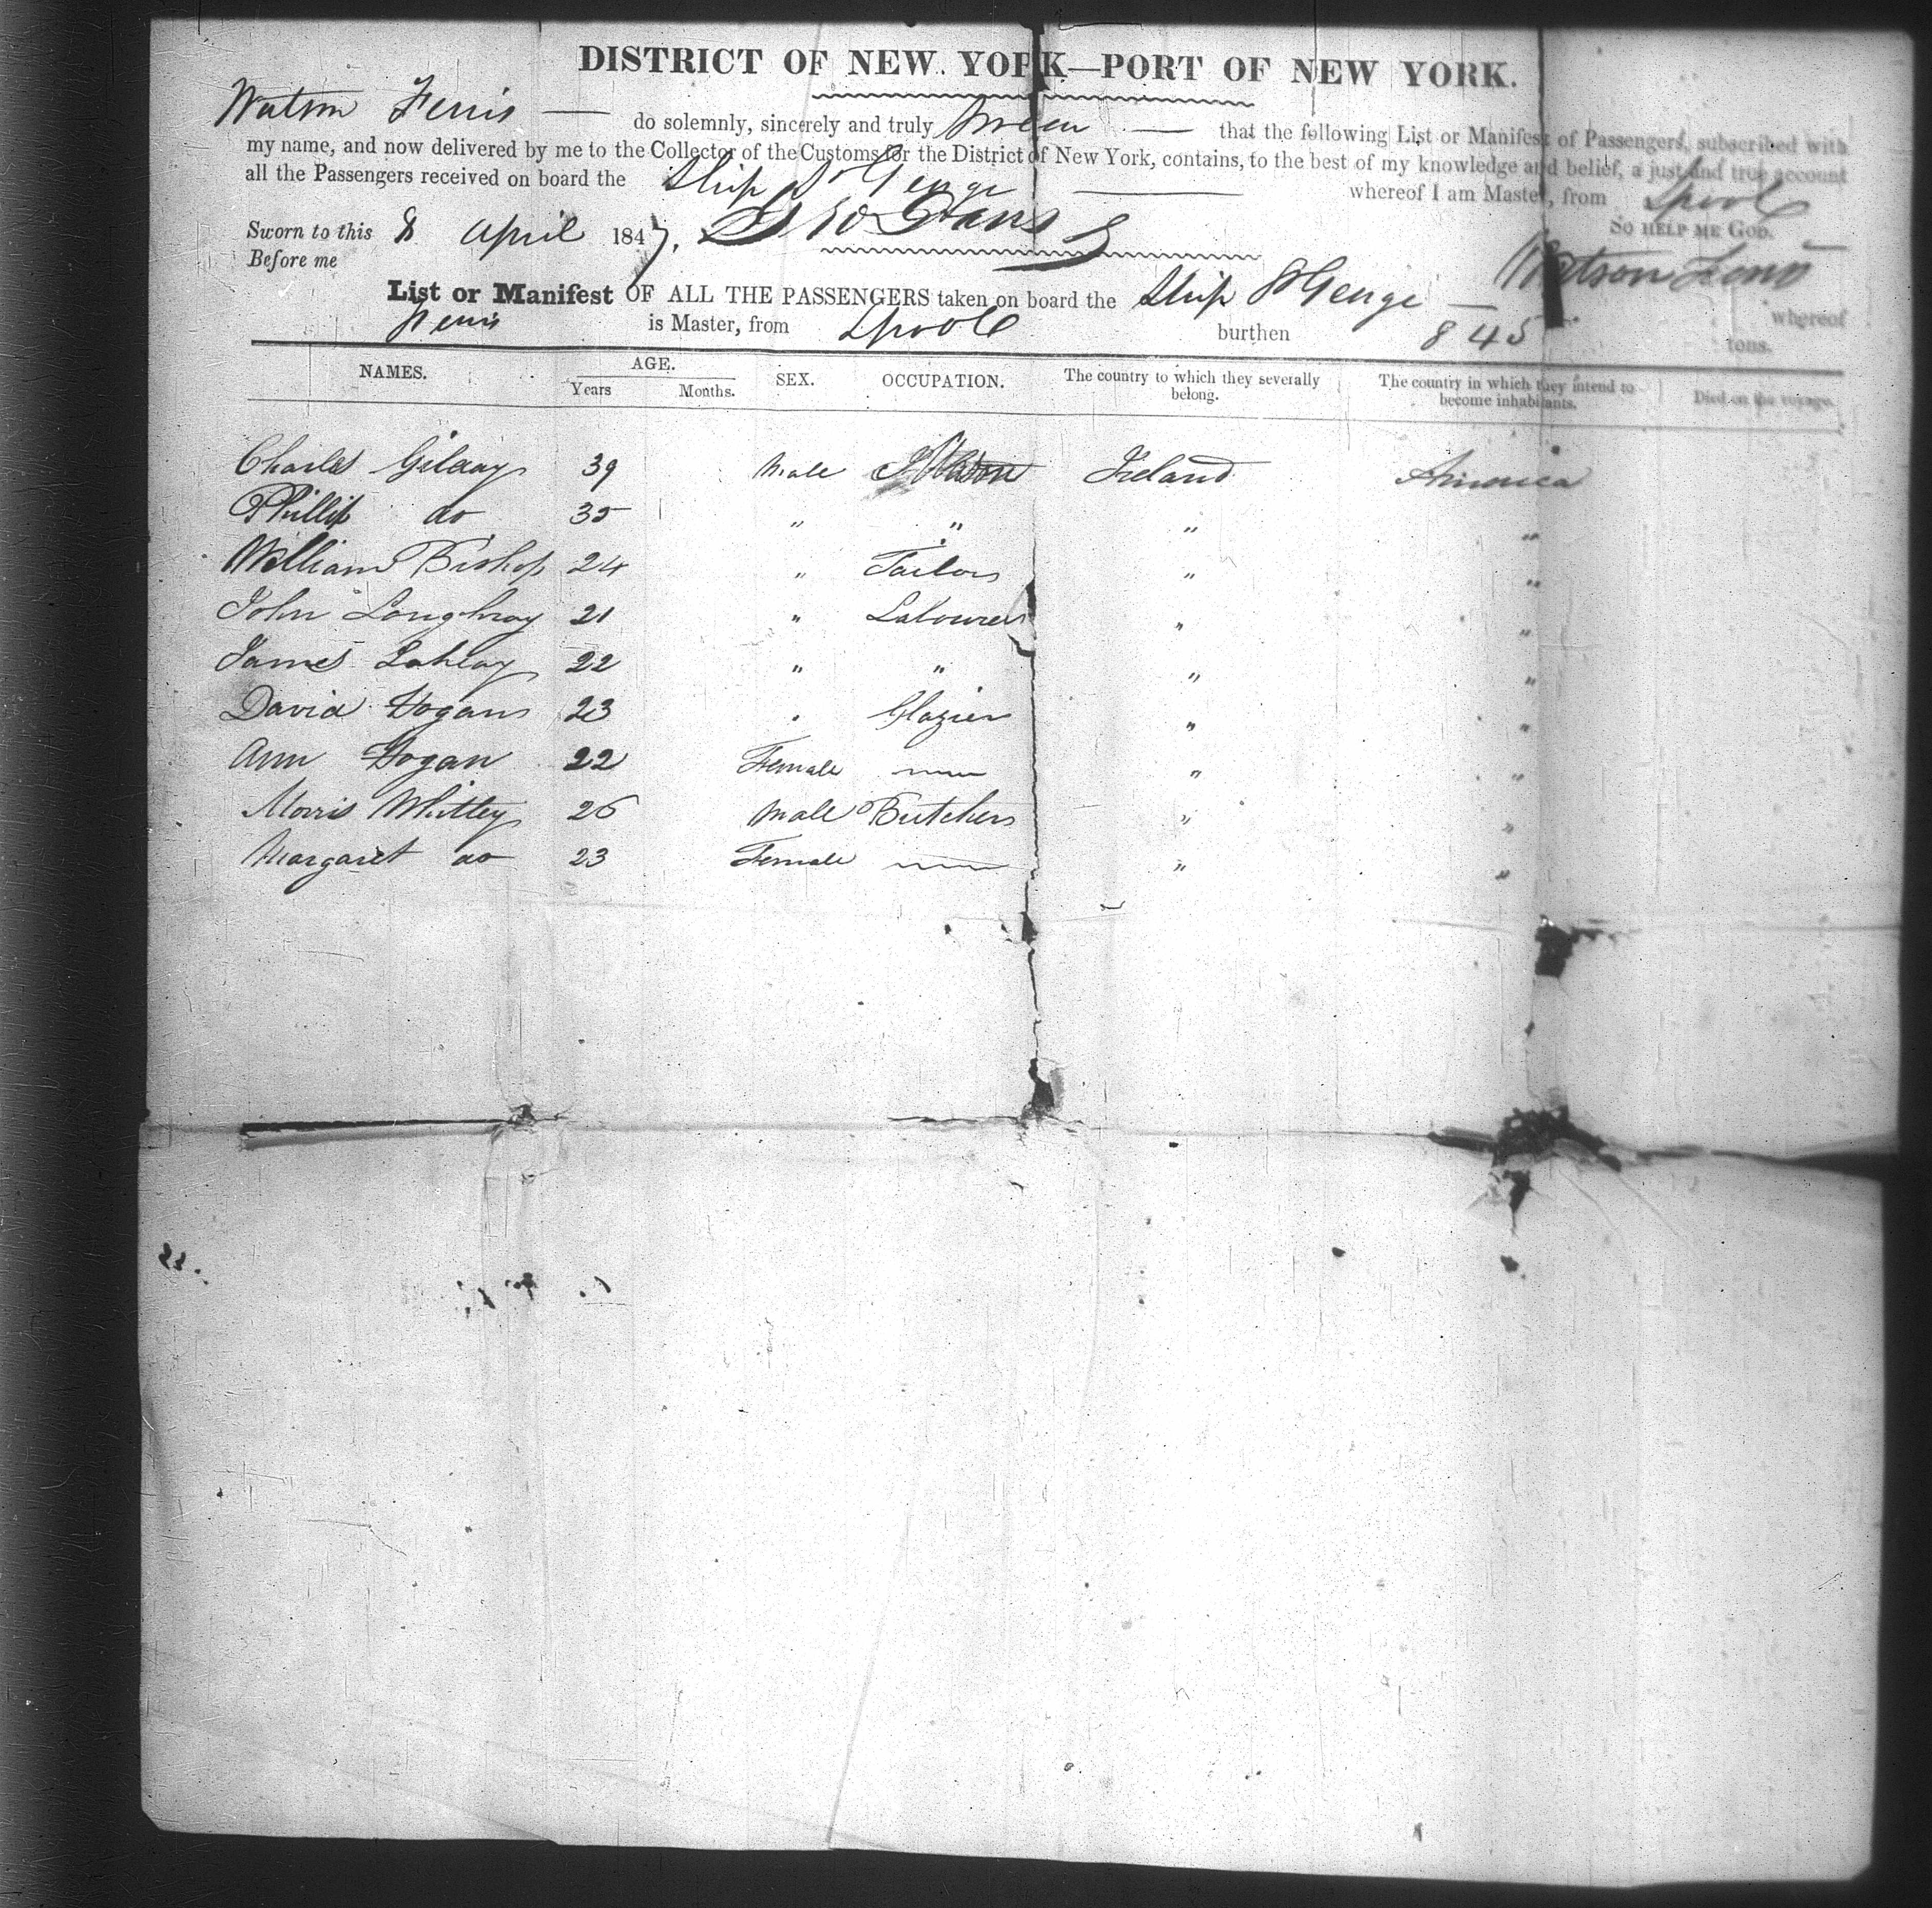 DISTRICT OF NEW YORK—PORT OF NEW YORK.
Watson Ferris — do solemnly, sincerely and truly Swear — that the following List or Manifest of Passengers, subscribed with
my name, and now delivered by me to the Collector of the Customs for the District of New York, contains, to the best of my knowledge and belief, a just and true account
all the Passengers received on board the Ship St George — whereof I am Master, from Lpool
Sworn to this 8 April 1847. SO HELP ME GOD.
Before me Watson Ferris
List or Manifest OF ALL THE PASSENGERS taken on board the Ship St George — whereof
Ferris is Master, from Lpool burthen 845 tons.
NAMES. AGE. SEX. OCCUPATION. The country to which they severally belong. The country in which they intend to become inhabitants. Died on the voyage.
Years Months.
Charles Gilday 39 Male Ireland America
Phillip do 35 " " " "
William Bishop 24 " Tailor " "
John Loughray 21 " Labourer " "
James Lahay 22 " " " "
David Hogan 23 " Glazier " "
Ann Hogan 22 Female — " "
Morris Whitley 26 Male Butcher " "
Margaret do 23 Female — " "